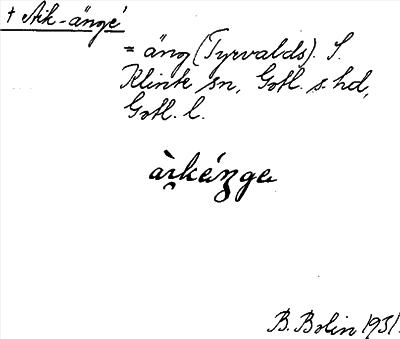 † Aik-änge´
= äng (Tyrvalds). S.
Klinte sn, Gotl. s. hd,
Gotl. l.
àı̯káŋga
B. Bolin 1931.